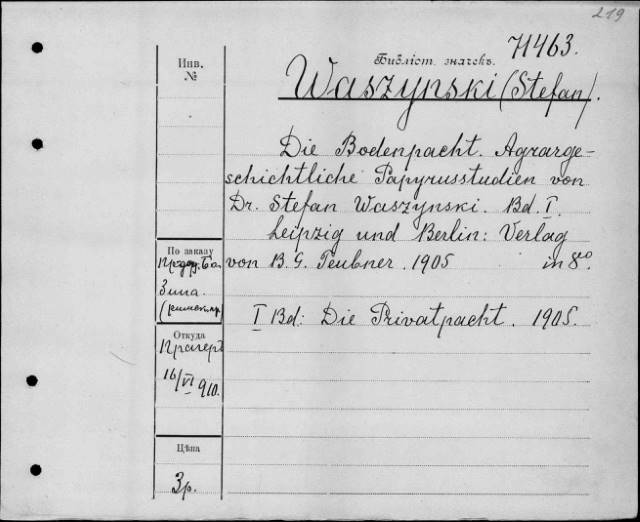 219
71463.
Библіот. значекъ.
Инв.
№
Waszynski (Stefan).
Die Bodenpacht. Agrarge-
schichtliche Papyrusstudien von
Dr. Stefan Waszynski. Bd. I.
Leipzig und Berlin: Verlag
von B. G. Teubner. 1905 in 8º.
I Bd: Die Privatpacht. 1905.
По заказу
Зина.
Откуда
Прагеръ
16/VI 910.
Цѣна
3р.